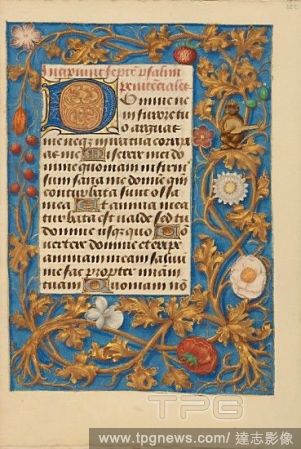 Incipiunt septe psalmi
penitenciales
Domine ne
in furore tuo
arguas
me neqz in ira tua corripi
as me Miserere mei do
mine quoniam infirmus
sum sana me domine
conturbata sunt ossa
mea Et anima mea
turbata est valde sed tu
domine usquequo Con
vertere domine et eripe
animam meam salvu
me fac propter miam
tuam Quoniam no
TPG
www.tpgnews.com/達志影像